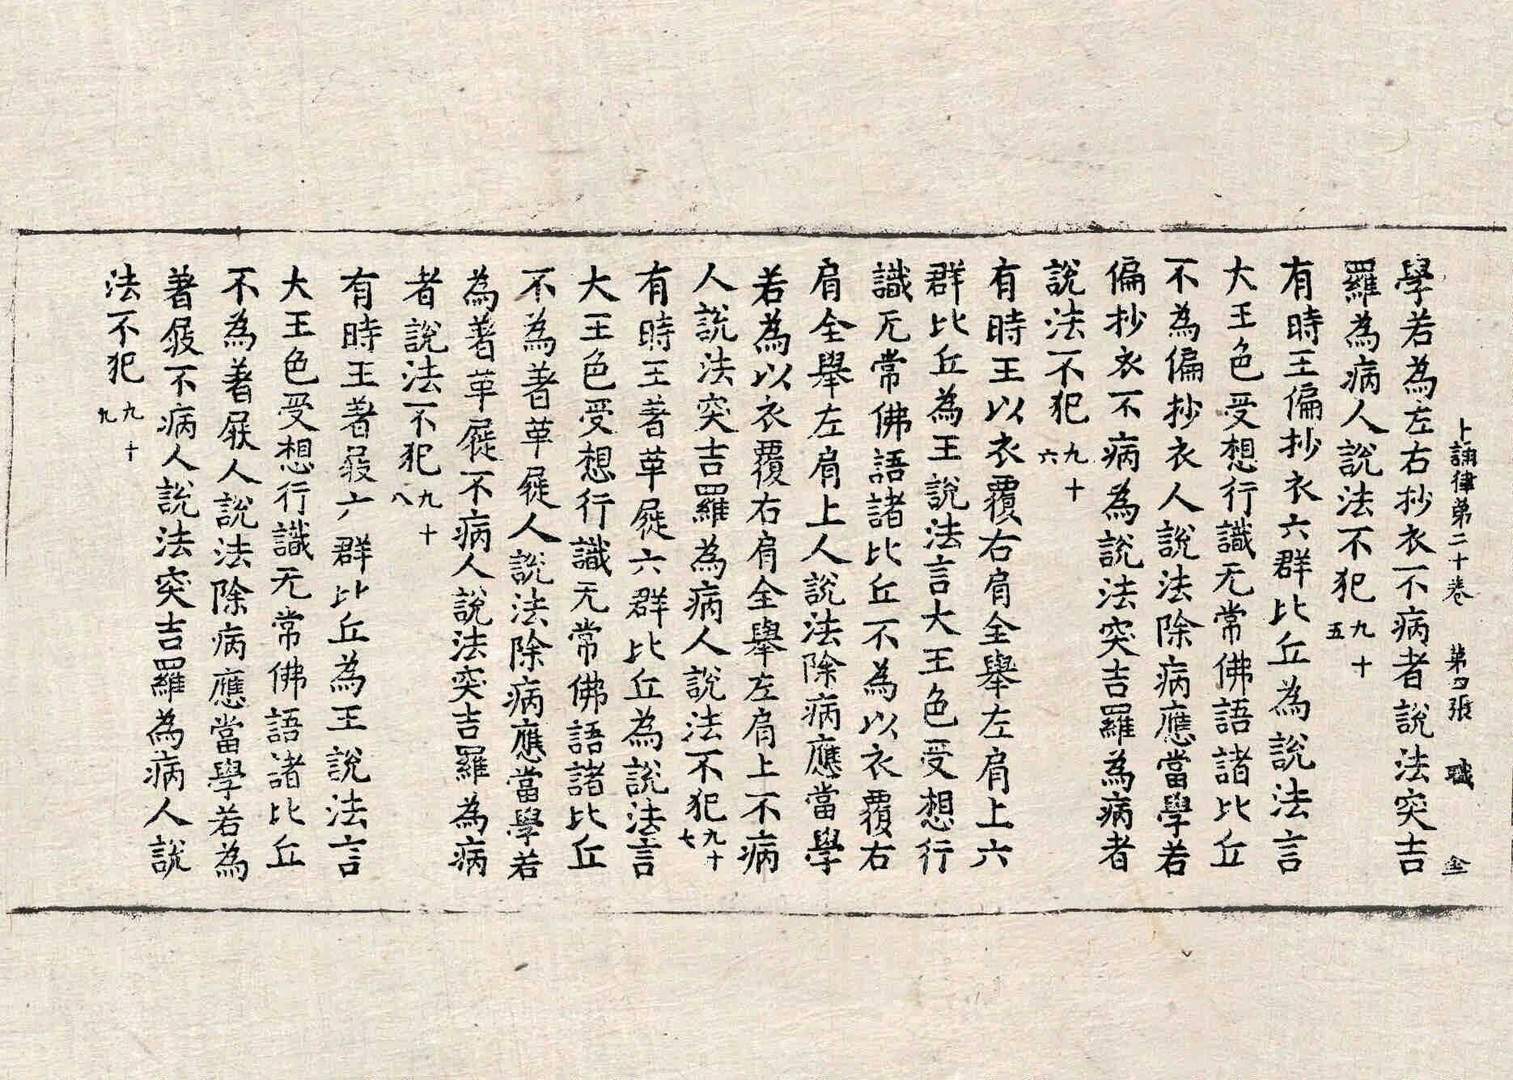 十誦律第二十卷 第四張 職 金
學若為左右抄衣不病者說法突吉
羅為病人說法不犯 九十五
有時王偏抄衣六群比丘為說法言
大王色受想行識无常佛語諸比丘
不為偏抄衣人說法除病應當學若
偏抄衣不病為說法突吉羅為病者
說法不犯 九十六
有時王以衣覆右肩全舉左肩上六
群比丘為王說法言大王色受想行
識无常佛語諸比丘不為以衣覆右
肩全舉左肩上人說法除病應當學
若為以衣覆右肩全舉左肩上不病
人說法突吉羅為病人說法不犯 九十七
有時王著革屣六群比丘為說法言
大王色受想行識无常佛語諸比丘
不為著革屣人說法除病應當學若
為著革屣不病人說法突吉羅為病
者說法不犯 九十八
有時王著屐六群比丘為王說法言
大王色受想行識无常佛語諸比丘
不為著屐人說法除病應當學若為
著屐不病人說法突吉羅為病人說
法不犯 九十九